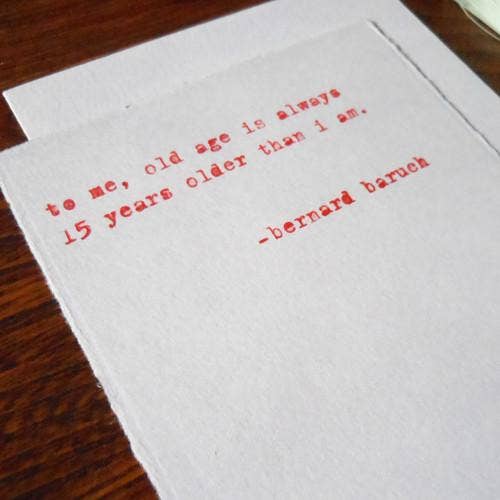 to me, old age is always
15 years older than i am.
-bernard baruch